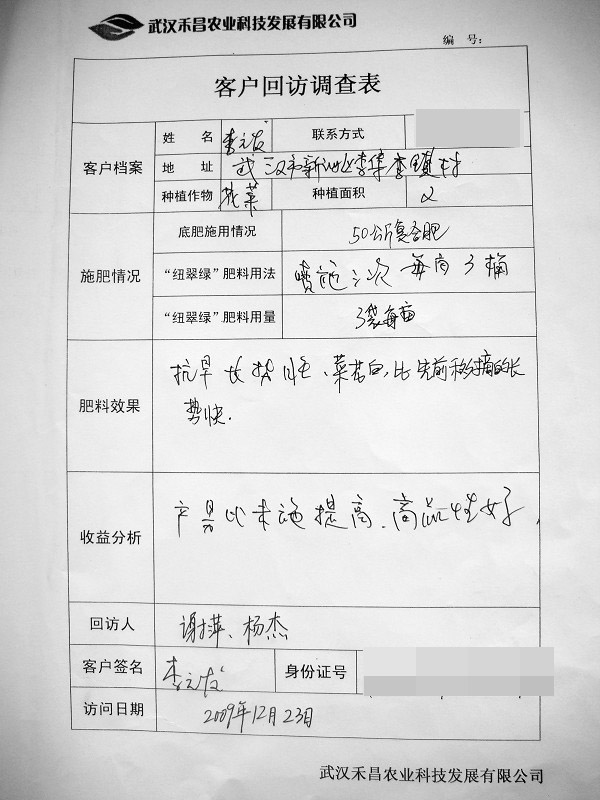 武汉禾昌农业科技发展有限公司
编 号：
客户回访调查表
客户档案
姓 名 李立发 联系方式
地 址 武汉市新洲区李集李镇村
种植作物 花菜 种植面积 2
施肥情况
底肥施用情况 50公斤复合肥
“纽翠绿”肥料用法 喷施三次 每亩3桶
“纽翠绿”肥料用量 3袋每亩
肥料效果
抗旱 长势旺、菜花白，比先前移摘的长
势快．
收益分析
产量比未施提高、商品性好，
回访人 谢萍、杨杰
客户签名 李立发 身份证号
访问日期 2009年12月23日
武汉禾昌农业科技发展有限公司